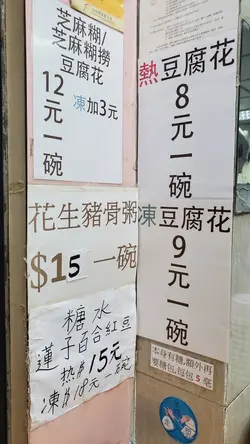 芝麻糊/
芝麻糊撈
豆腐花
12元一碗
凍加3元
花生豬骨粥
$15 一碗
糖水
蓮子百合紅豆
熱$15元
凍$18元一碗
熱豆腐花
8元一碗
凍豆腐花
9元一碗
本身有糖,額外再
要糖包,每包5毫